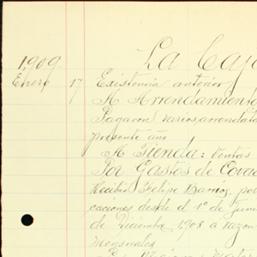 La Caja
1909
Enero 17 Existencia anterior
A Arrendamiento
Pagaron varios arrendata
presente año
A Tienda: Ventas
Por Gastos de
Recibió Felipe Ramoz, por
caciones desde el 1º de
de Diciembre 1908 a razon
mensuales